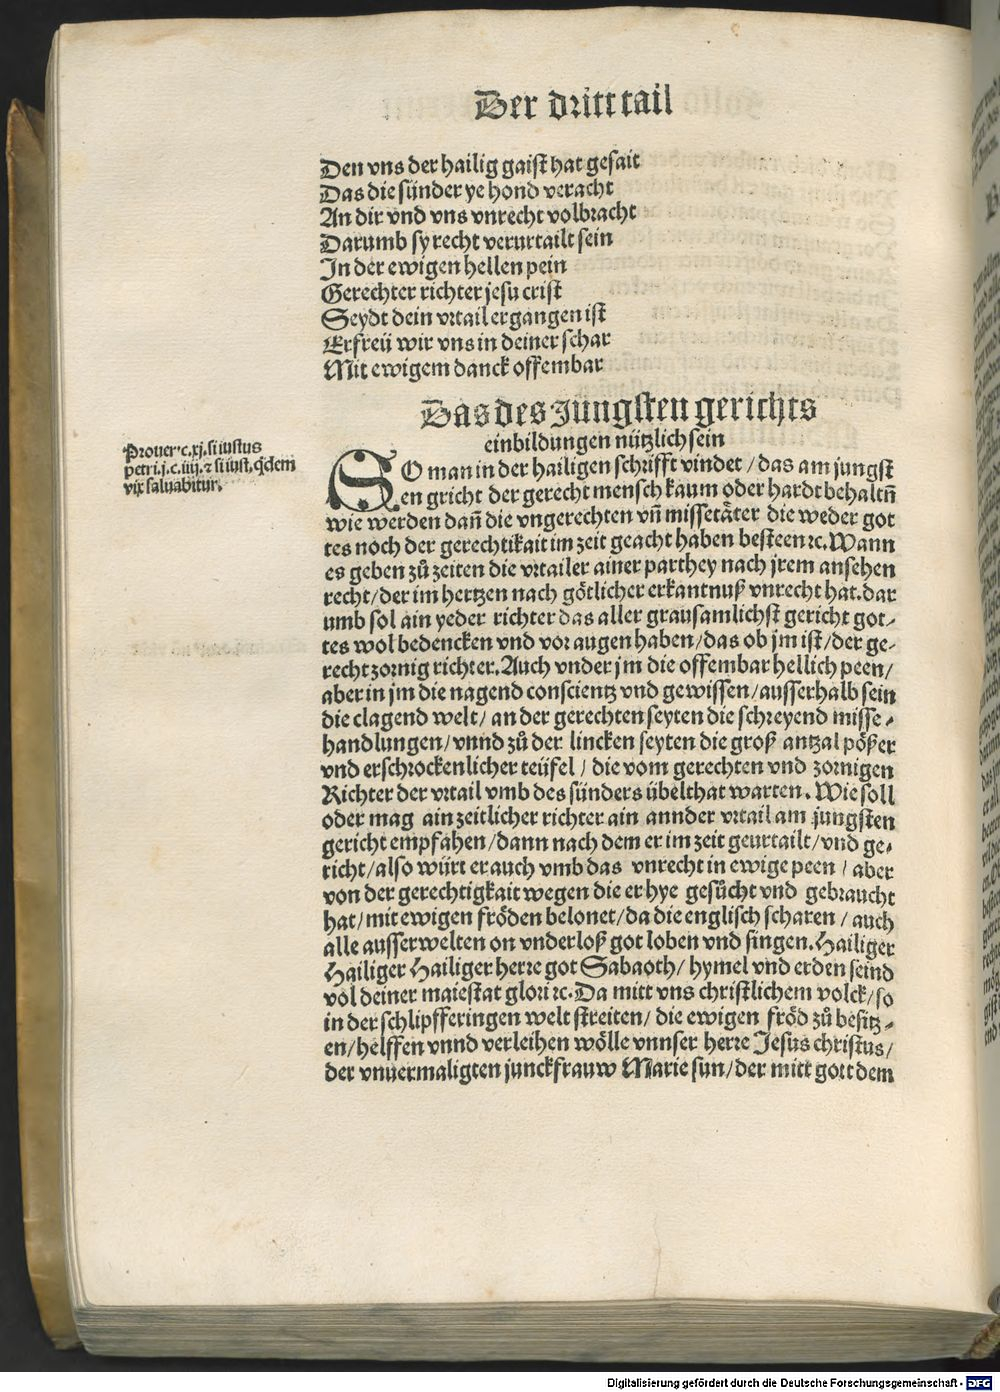 Der dritt tail
Den vns der hailig gaist hat gesait
Das die sünder ye hond veracht
An dir vnd vns vnrecht volbracht
Darumb sy recht verurtailt sein
In der ewigen hellen pein
Gerechter richter jesu crist
Seydt dein vrtail ergangen ist
Erfreü wir vns in deiner schar
Mit ewigem danck offembar
Das des Jungsten gerichts
einbildungen nützlich sein
Prouer. c. xj. si iustus
petri. j. c. iiij. ⁊ si iust. qͥdem
vix saluabitur.
SO man in der hailigen schrifft vindet / das am jungst
en gricht der gerecht mensch kaum oder hardt behaltn̄
wie werden dan̄ die vngerechten vn̄ missetäter die weder got
tes noch der gerechtikait im zeit geacht haben besteen ⁊c. Wann
es geben zů zeiten die vrtailer ainer parthey nach jrem ansehen
recht / der im hertzen nach götlicher erkantnuß vnrecht hat. dar
umb sol ain yeder richter das aller grausamlichst gericht got⸗
tes wol bedencken vnd vor augen haben / das ob jm ist / der ge⸗
recht zornig richter. Auch vnder jm die offembar hellich peen /
aber in jm die nagend conscientz vnd gewissen / ausserhalb sein
die clagend welt / an der gerechten seyten die schreyend misse⸗
handlungen / vnnd zů der lincken seyten die groß antzal pößer
vnd erschrockenlicher teüfel / die vom gerechten vnd zornigen
Richter der vrtail vmb des sünders übelthat warten. Wie soll
oder mag ain zeitlicher richter ain annder vrtail am jungsten
gericht empfahen / dann nach dem er im zeit geurtailt / vnd ge⸗
richt / also würt er auch vmb das vnrecht in ewige peen / aber
von der gerechtigkait wegen die er hye gesůcht vnd gebraucht
hat / mit ewigen fröden belonet / da die englisch scharen / auch
alle ausserwelten on vnderloß got loben vnd singen. Hailiger
Hailiger Hailiger herre got Sabaoth / hymel vnd erden seind
vol deiner maiestat glori ⁊c. Da mitt vns christlichem volck / so
in der schlipfferingen welt streiten / die ewigen fröd zů besitz⸗
en / helffen vnnd verleihen wölle vnnser herre Jesus christus /
der vnuermaligten junckfrauw Marie sun / der mitt gott dem
Digitalisierung gefördert durch die Deutsche Forschungsgemeinschaft - DFG